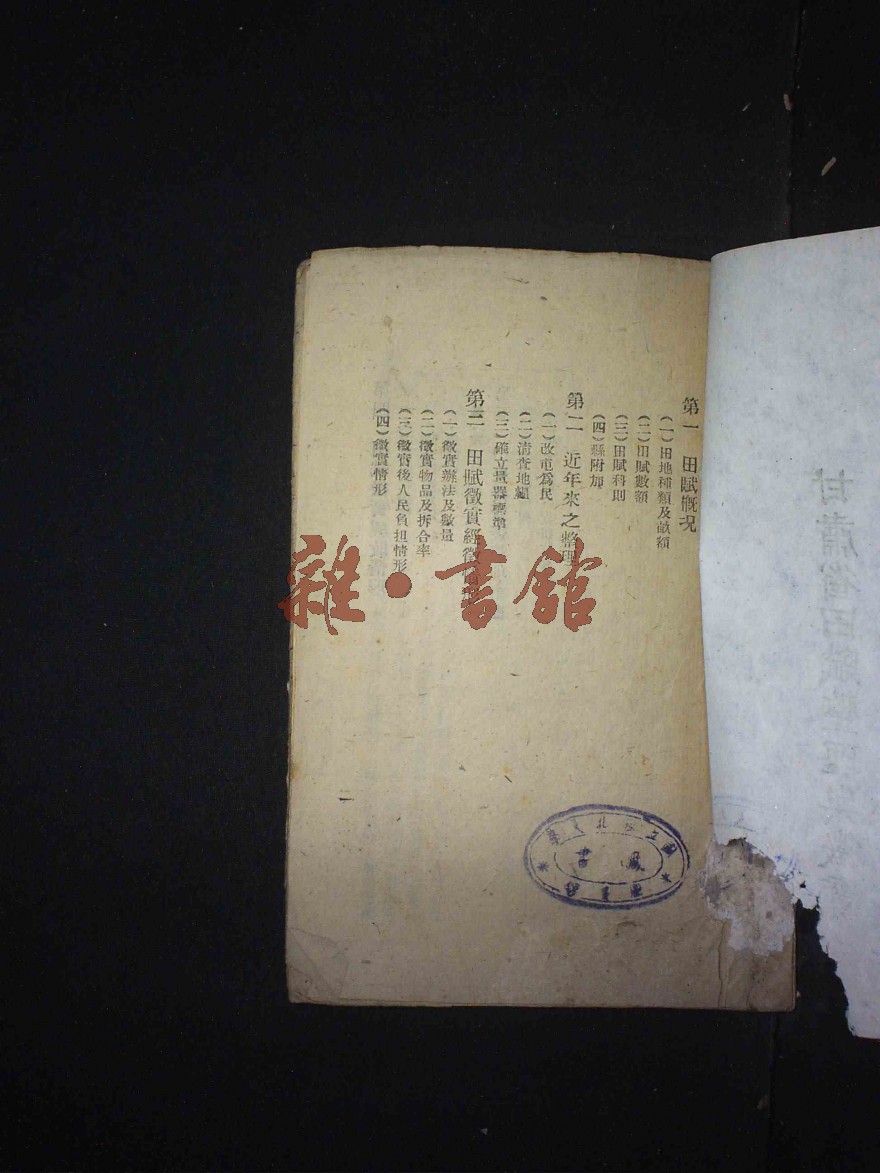 第一　田賦概况
（一）田地種類及畝額
（二）田賦數額
（三）田賦科則
（四）縣附加
第二　近年來之整理
（一）改屯爲民
（二）清查地糧
（三）確立量器標準
第三　田賦徵實經徵
（一）徵實辦法及數量
（二）徵實物品及拆合率
（三）徵實後人民負担情形
（四）徵實情形
一
雜·書館
甘肅省田賦